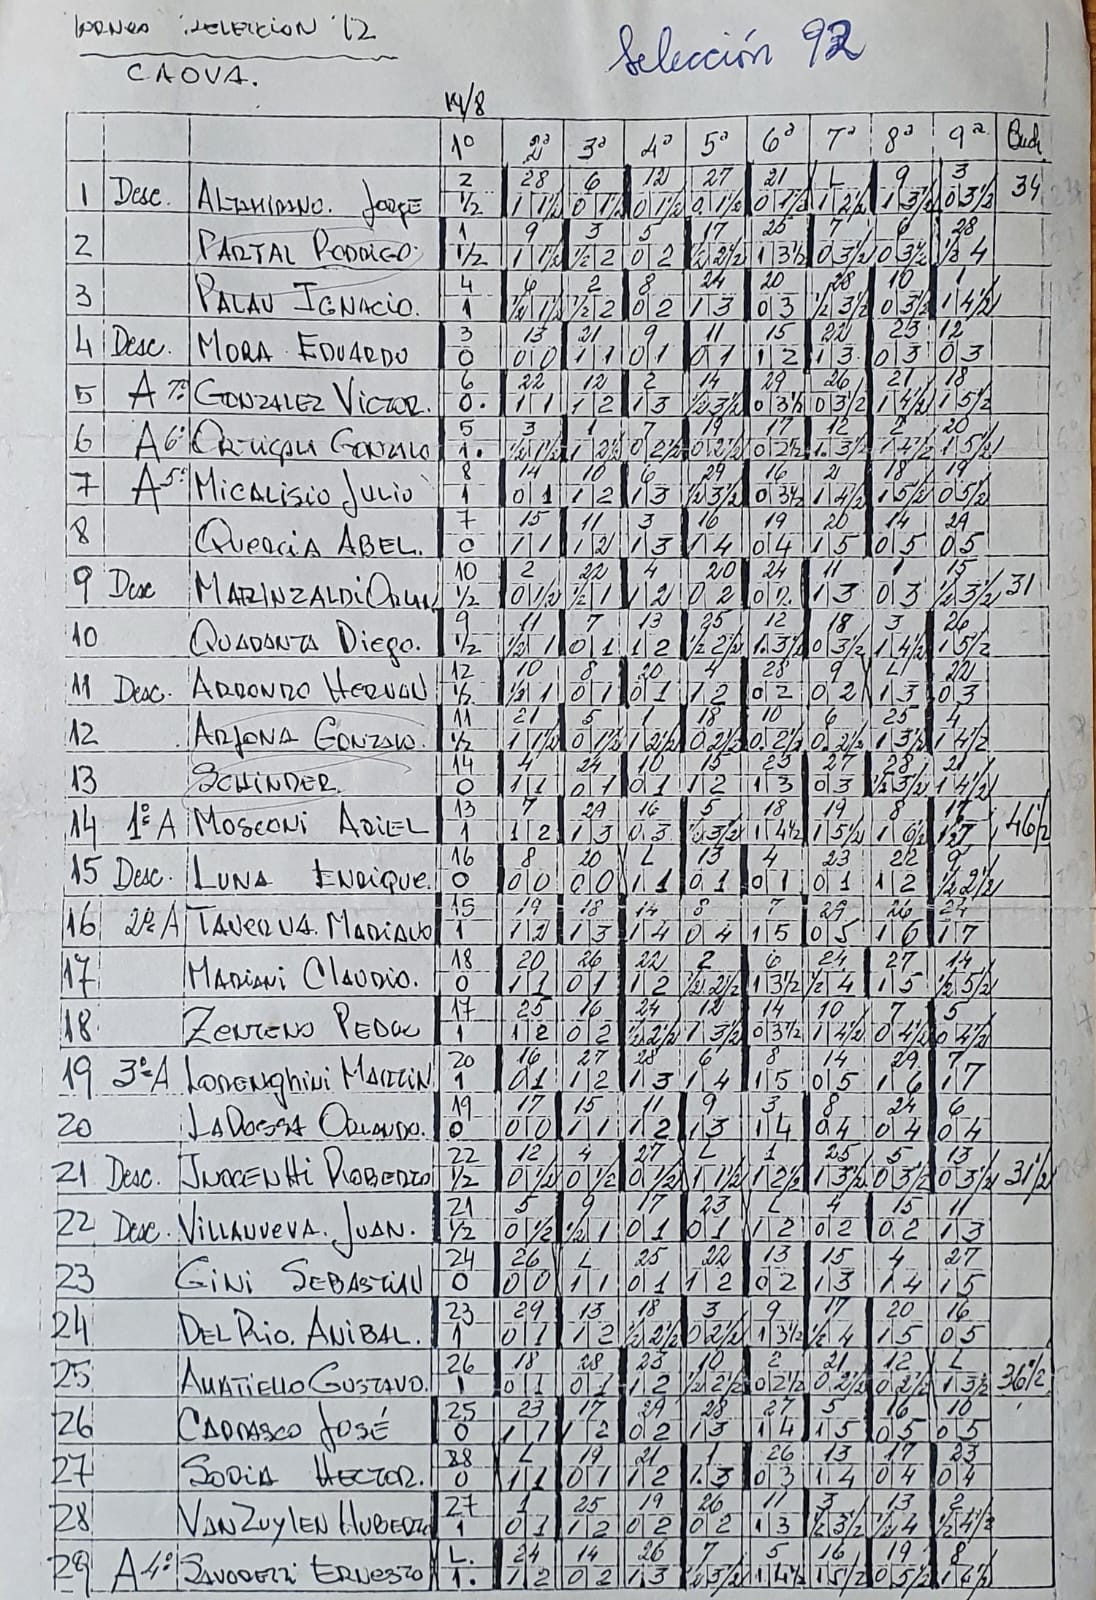 TORNEO SELECCION '92
Selección 92
CAOVA.
14/8
1º 2ª 3ª 4ª 5ª 6ª 7ª 8ª 9ª Buch.
2 28 6 12 27 21 L 9 3
1 Desc. ALTAMIRANO. Jorge 1/2 1 1½ 0 1½ 0 1½ 0 1½ 0 1½ 1 2½ 1 3½ 0 3½ 34
1 9 3 5 17 25 7 6 28
2 PARTAL RODRIGO. 1/2 1 1½ ½ 2 0 2 ½ 2½ 1 3½ 0 3½ 0 3½ ½ 4
4 6 2 8 24 20 28 10 1
3 PALAU IGNACIO. 1 ½ 1½ ½ 2 0 2 1 3 0 3 ½ 3½ 0 3½ 1 4½
3 13 21 9 11 15 22 23 12
4 Desc. MORA EDUARDO 0 0 0 1 1 0 1 0 1 1 2 1 3 0 3 0 3
6 22 12 2 14 29 26 21 18
5 A 7º GONZALEZ VICTOR. 0. 1 1 1 2 1 3 ½ 3½ 0 3½ 0 3½ 1 4½ 1 5½
5 3 1 7 19 17 12 2 20
6 A 6º GONZALO 1. ½ 1½ 1 2½ 0 2½ 0 2½ 0 2½ 1. 3½ 1 4½ 1 5½
8 14 10 6 29 16 2 18 19
7 A 5º MICALISIO JULIO 1 0 1 1 2 1 3 ½ 3½ 0 3½ 1 4½ 1 5½ 0 5½
7 15 11 3 16 19 20 14 29
8 QUERCIA ABEL. 0 1 1 1 2 1 3 1 4 0 4 1 5 0 5 0 5
10 2 22 4 20 24 11 1 15
9 Desc MARINZALDI 1/2 0 ½ ½ 1 1 2 0 2 0 2. 1 3 0 3 ½ 3½ 31
9 11 7 13 25 12 18 3 26
10 QUARANTA Diego. 1/2 ½ 1 0 1 1 2 ½ 2½ 1. 3½ 0 3½ 1 4½ 1 5½
12 10 8 20 4 28 9 L 22
11 Desc. ARRONDO HERNAN 1/2 ½ 1 0 1 0 1 1 2 0 2 0 2 1 3 0 3
11 21 5 1 18 10 6 25 4
12 ARJONA GONZALO. 1/2 1 1½ 0 1½ 1 2½ 0 2½ 0. 2½ 0. 2½ 1 3½ 1 4½
14 4 24 10 15 23 27 28 21
13 SCHINDER. 0 1 1 0 1 0 1 1 2 1 3 0 3 ½ 3½ 1 4½
13 7 29 16 5 18 19 8 17
14 1º A MOSCONI ARIEL 1 1 2 1 3 0 3 ½ 3½ 1 4½ 1 5½ 1 6½ ½ 7 46½
16 8 20 L 13 4 23 22 9
15 Desc. LUNA ENRIQUE. 0 0 0 0 0 1 1 0 1 0 1 0 1 1 2 ½ 2½
15 19 18 14 8 7 29 26 24
16 2º A TAVERNA. MARIANO 1 1 2 1 3 1 4 0 4 1 5 0 5 1 6 1 7
18 20 26 22 2 6 24 27 14
17 MARIANI CLAUDIO. 0 1 1 0 1 1 2 ½ 2½ 1 3½ ½ 4 1 5 ½ 5½
17 25 16 24 12 14 10 7 5
18. ZENTENO PEDRO 1 1 2 0 2 ½ 2½ 1 3½ 0 3½ 1 4½ 0 4½ 0 4½
20 16 27 28 6 8 14 29 7
19 3º A LORENGHINI MARTIN 1 0 1 1 2 1 3 1 4 1 5 0 5 1 6 1 7
19 17 15 11 9 3 8 24 6
20 LAROSSA ORLANDO. 0 0 0 1 1 1 2 1 3 1 4 0 4 0 4 0 4
22 12 4 27 L 1 25 5 13
21 Desc. INOCENTI ROBERTO 1/2 0 ½ 0 ½ 0 ½ 1 1½ 1 2½ 1 3½ 0 3½ 0 3½ 31½
21 5 9 17 23 L 4 15 11
22 Desc. VILLANUEVA. JUAN. 1/2 0 ½ ½ 1 0 1 0 1 1 2 0 2 0 2 1 3
24 26 L 25 22 13 15 4 27
23 GINI SEBASTIAN 0 0 0 1 1 0 1 1 2 0 2 1 3 1 4 1 5
23 29 13 18 3 9 17 20 16
24 DEL RIO. ANIBAL. 1 0 1 1 2 ½ 2½ 0 2½ 1 3½ ½ 4 1 5 0 5
26 18 28 23 10 2 21 12 L
25 AMATIELLO GUSTAVO. 1 0 1 0 1 1 2 ½ 2½ 0 2½ 0 2½ 0 2½ 1 3½ 36½
25 23 17 29 28 27 5 16 10
26 CARRASCO JOSÉ 0 1 1 1 2 0 2 1 3 1 4 1 5 0 5 0 5
28 L 19 21 1 26 13 17 23
27 SORIA HECTOR. 0 1 1 0 1 1 2 1. 3 0 3 1 4 0 4 0 4
27 1 25 19 26 11 3 13 2
28 VAN ZUYLEN HUBERTO 1 0 1 1 2 0 2 0 2 1 3 ½ 3½ ½ 4 ½ 4½
L. 24 14 26 7 5 16 19 8
29 A 4º ERNESTO 1. 1 2 0 2 1 3 ½ 3½ 1 4½ 1 5½ 0 5½ 1 6½